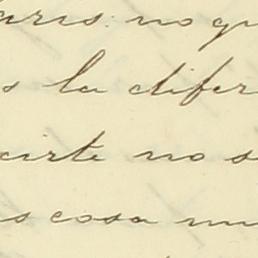 aris: no qu
s la difer
arte no s
s cosa mu